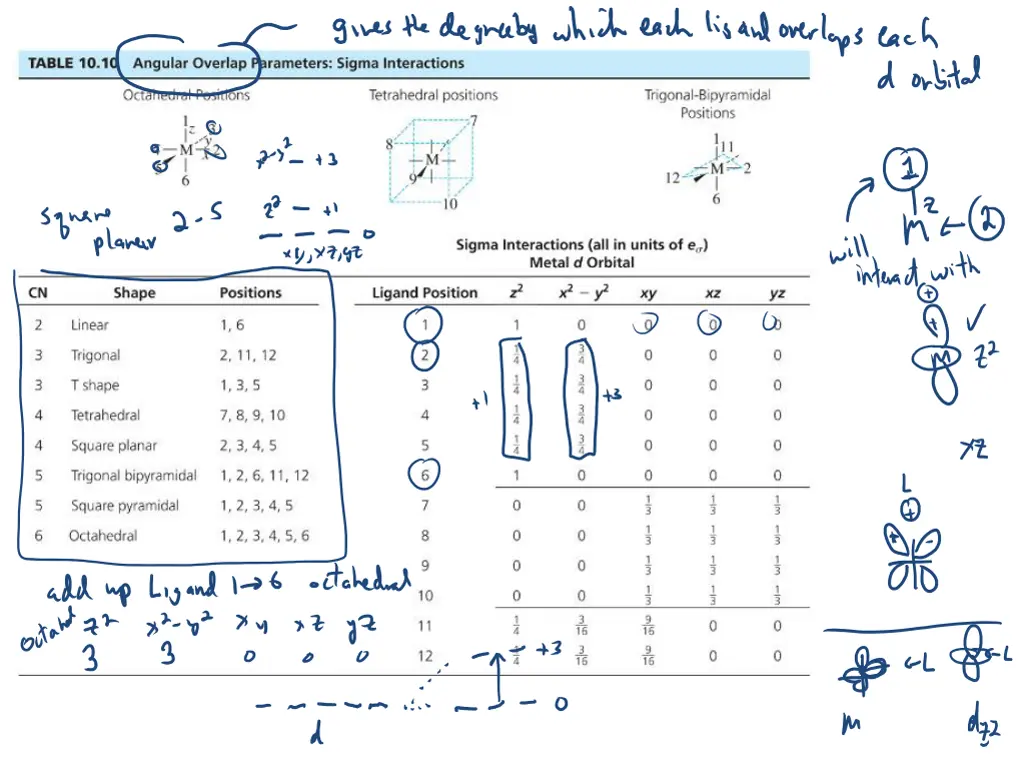 gives the degree by which each ligand overlaps each
d orbital
TABLE 10.10 Angular Overlap Parameters: Sigma Interactions
Octahedral Positions
Tetrahedral positions
Trigonal-Bipyramidal
Positions
1 z 3 y 4 M x 2 5 6
8 7 M 9 10
1 11 M 2 12 6
x²-y² — +3
square
planar
2-5
z² — +1
— — — 0
xy, xz, yz
1
z
M ← 2
will
interact with
+
+
M z² ✓
Sigma Interactions (all in units of eσ)
Metal d Orbital
CN Shape Positions
2 Linear 1, 6
3 Trigonal 2, 11, 12
3 T shape 1, 3, 5
4 Tetrahedral 7, 8, 9, 10
4 Square planar 2, 3, 4, 5
5 Trigonal bipyramidal 1, 2, 6, 11, 12
5 Square pyramidal 1, 2, 3, 4, 5
6 Octahedral 1, 2, 3, 4, 5, 6
Ligand Position z² x² − y² xy xz yz
1 1 0 0 0 0
2 1/4 3/4 0 0 0
3 1/4 3/4 0 0 0
4 1/4 3/4 0 0 0
5 1/4 3/4 0 0 0
6 1 0 0 0 0
7 0 0 1/3 1/3 1/3
8 0 0 1/3 1/3 1/3
9 0 0 1/3 1/3 1/3
10 0 0 1/3 1/3 1/3
11 1/4 3/16 9/16 0 0
12 1/4 3/16 9/16 0 0
+1
+3
xz
L
+
+ -
add up Ligand 1→6 octahedral
z² x²-y² xy xz yz
3 3 0 0 0
+3
— — — 0
d
←L
←L
M